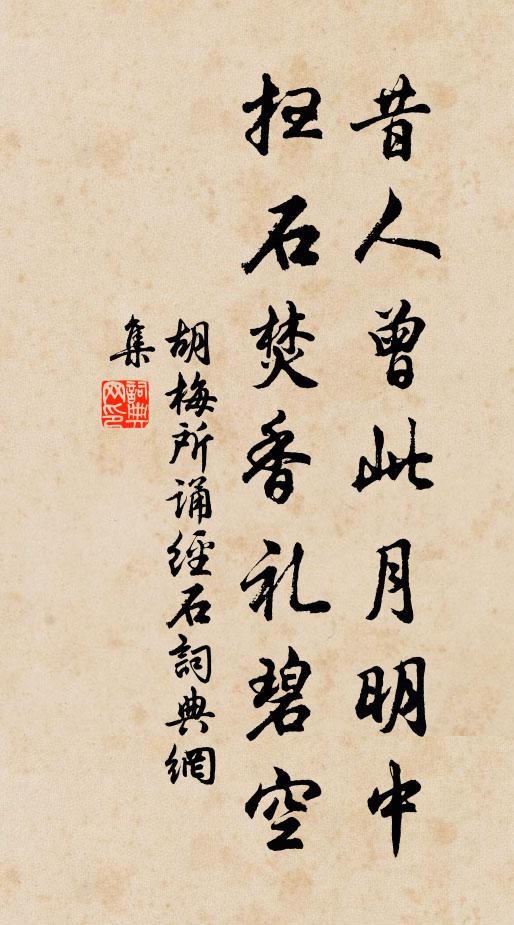 昔人曾此月明中
扫石焚香礼碧空
胡梅所诵經石詞典網
集
詞典網印